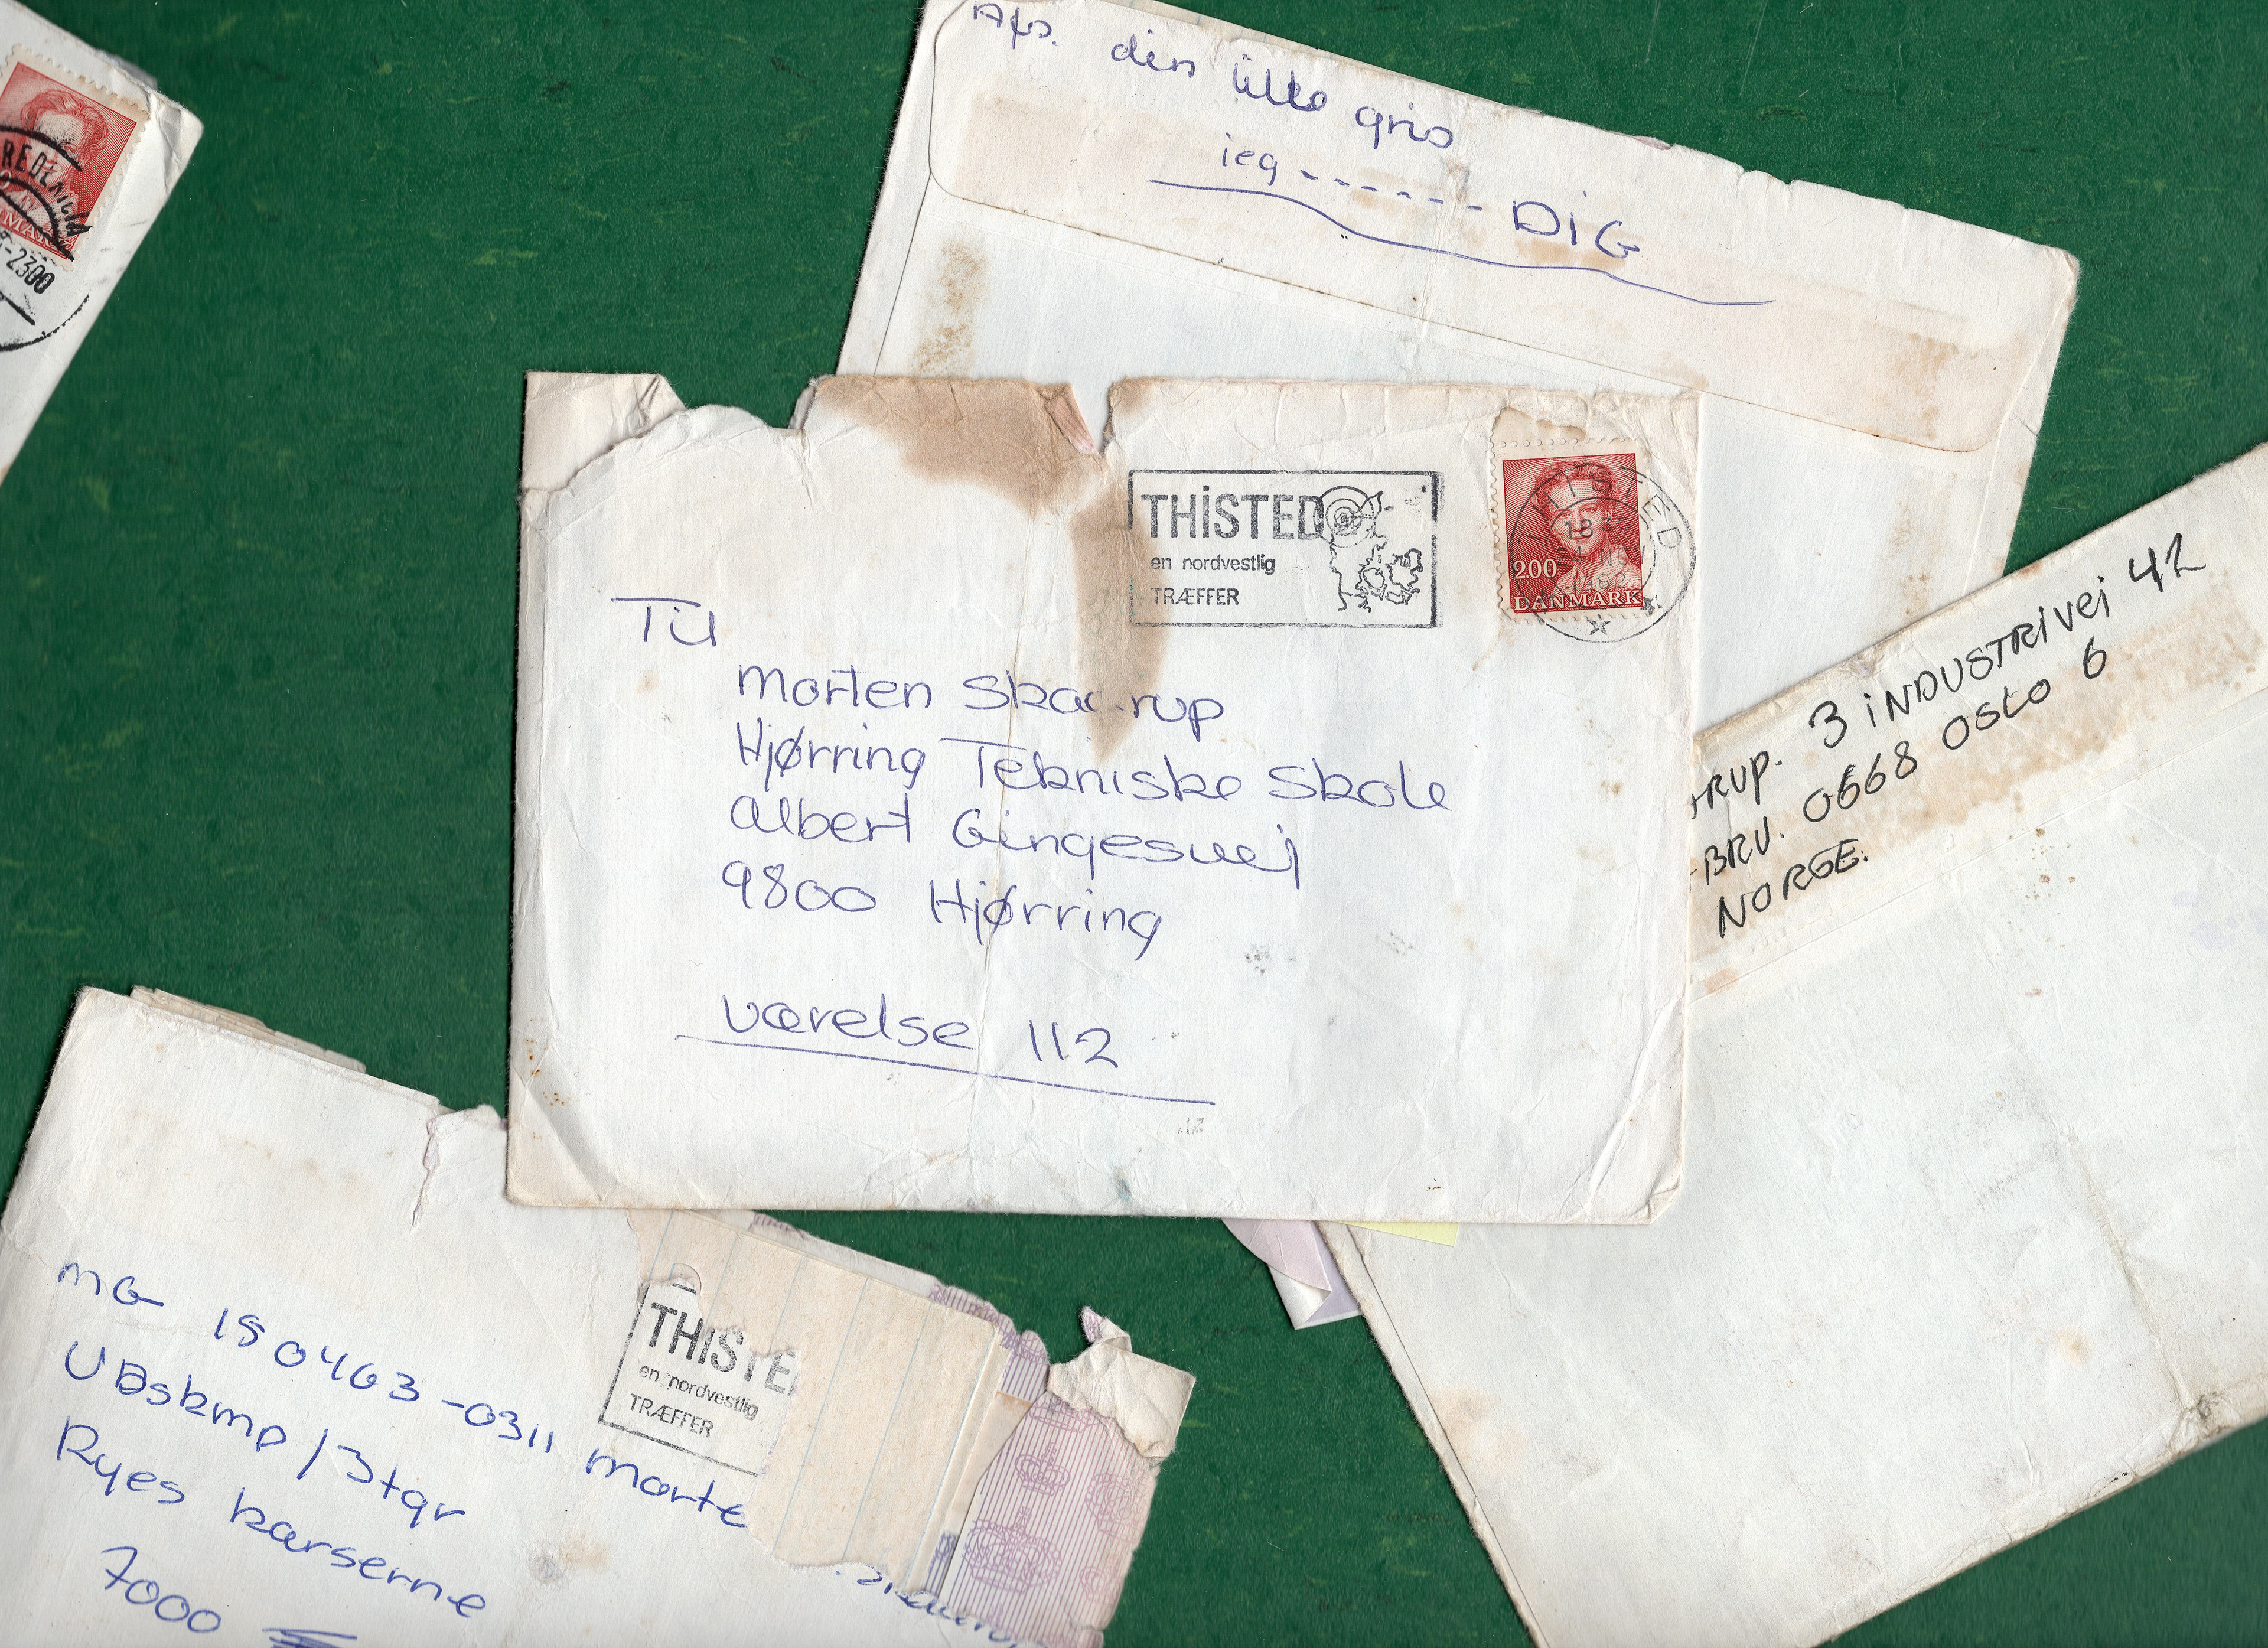 Afs. den lille gris
jeg ------ DIG
REDERICIA
-2300
THiSTED
en nordvestlig
TRÆFFER
THISTED
18 30
24 NOV
1982
2.00
DANMARK
Til
Morten Skaarup
Hjørring Tekniske Skole
Albert Gingesvej
9800 Hjørring
værelse 112
RUP. 3 INDUSTRIVEJ 42
BRU. 0668 OSLO 6
NORGE.
THISTE
en nordvestlig
TRÆFFER
MG 150463-0311 Morte
/3tgr
Ryes kaserne
7000